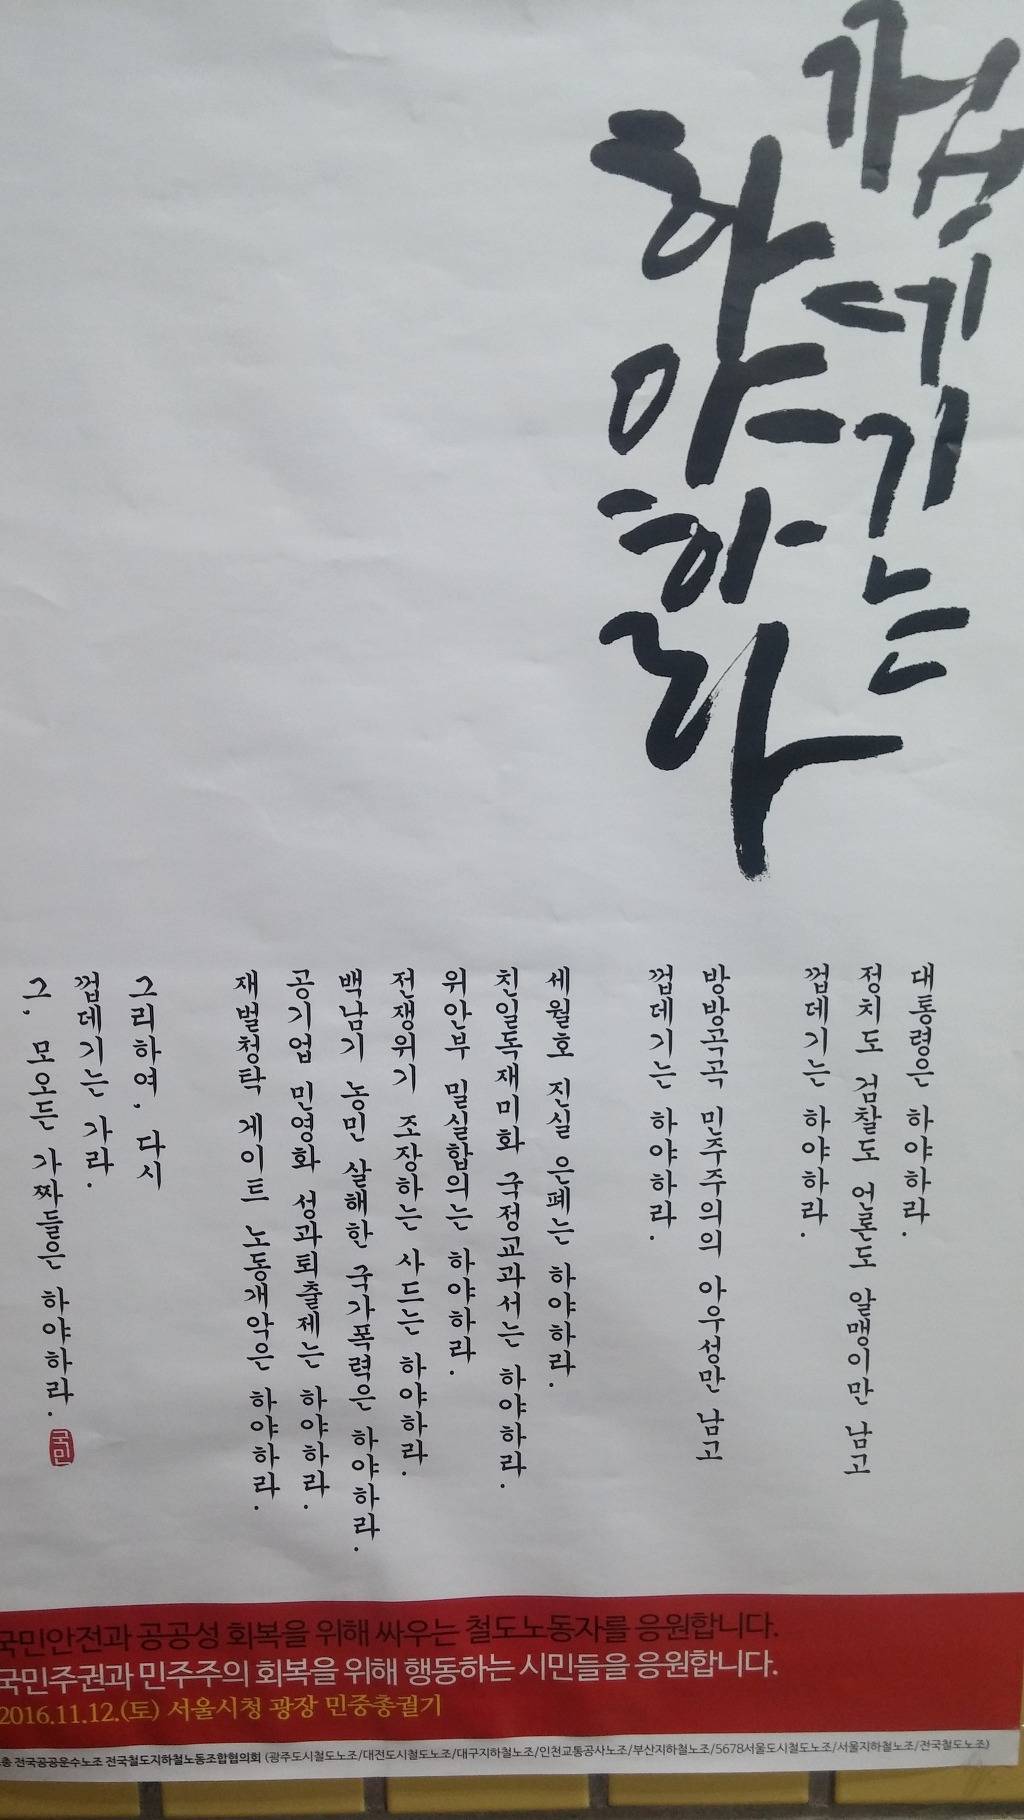 껍데기는
하야하라
대통령은 하야하라.
정치도 검찰도 언론도 알맹이만 남고
껍데기는 하야하라.
방방곡곡 민주주의의 아우성만 남고
껍데기는 하야하라.
세월호 진실 은폐는 하야하라.
친일독재미화 국정교과서는 하야하라.
위안부 밀실합의는 하야하라.
전쟁위기 조장하는 사드는 하야하라.
백남기 농민 살해한 국가폭력은 하야하라.
공기업 민영화 성과퇴출제는 하야하라.
재벌청탁 게이트 노동개악은 하야하라.
그리하여, 다시
껍데기는 가라.
그, 모오든 가짜들은 하야하라.
국민
국민안전과 공공성 회복을 위해 싸우는 철도노동자를 응원합니다.
국민주권과 민주주의 회복을 위해 행동하는 시민들을 응원합니다.
2016.11.12.(토) 서울시청 광장 민중총궐기
총 전국공공운수노조 전국철도지하철노동조합협의회 (광주도시철도노조/대전도시철도노조/대구지하철노조/인천교통공사노조/부산지하철노조/5678서울도시철도노조/서울지하철노조/전국철도노조)